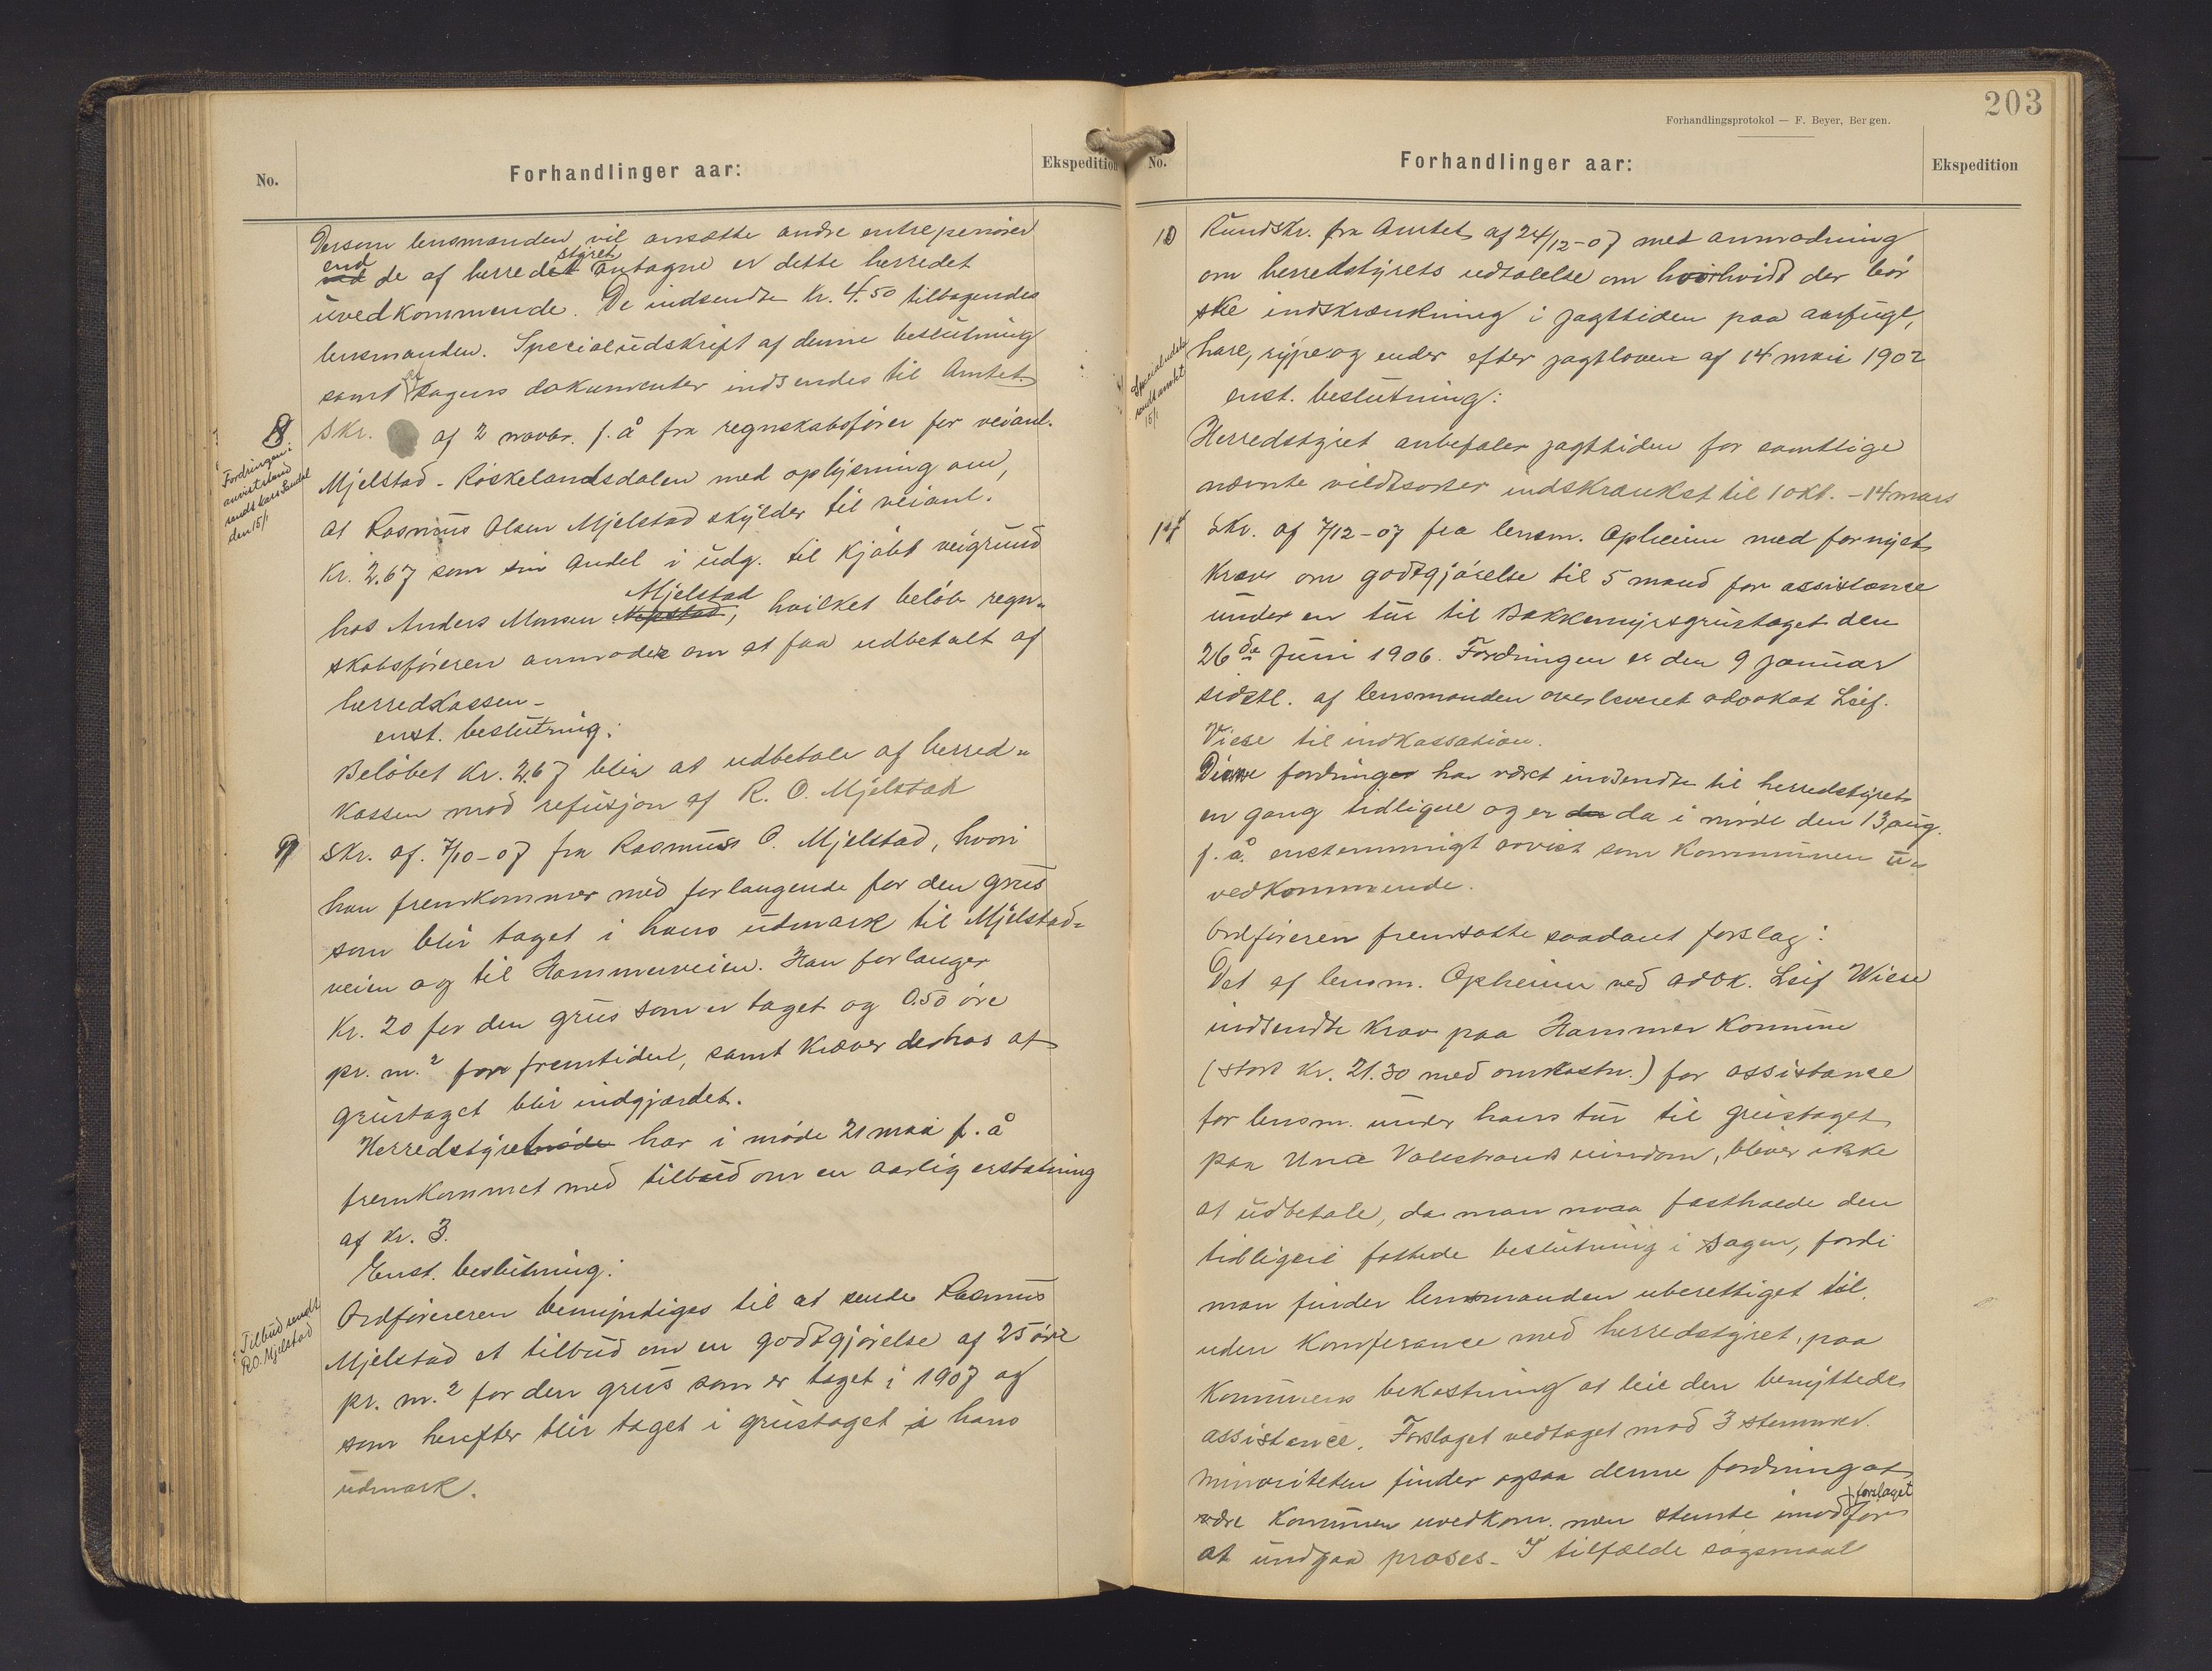 No.
Forhandlinger aar:
Ekspedition
Dersom lensmanden vil ansætte andre entreprenører
end de af herredsstyret antagne er dette herredet
uvedkommende. De indsendte kr. 4.50 tilbagesendes
lensmanden. Specialudskrift af denne beslutning
samt sagens dokumenter indsendes til Amtet.
8.
Fordringen
anvist
sendt Lars
den 15/1
Skr. af 2 novbr. f. å fra regnskabsfører for veianl.
Mjelstad - Røskelandsdalen med oplysning om,
at Rasmus Olsen Mjelstad skylder til veianl.
Kr. 2.67 som sin andel i udg. til kjøbt veigrund
hos Anders Monsen Mjelstad, hvilket beløb regn-
skabsføreren anmoder om at faa udbetalt af
herredskassen -
enst. beslutning:
Beløbet kr. 2.67 blir at udbetale af herred-
kassen mod refusjon af R. O. Mjelstad
9
Skr. af. 7/10-07 fra Rasmus O. Mjelstad, hvori
han fremkommer med forlangende for den grus
som blir taget i hans udmark til Mjelstad-
veien og til Hammerveien. Han forlanger
Kr. 20 for den grus som er taget og 0.50 øre
pr. m.² for fremtiden, samt kræver deshos at
grustaget blir indgjærdet.
Herredstyret møde har i møde 21 mai f. å
fremkommet med tilbud om en aarlig erstatning
af kr. 3.
Enst. beslutning:
Tilbud sendt
R.O. Mjelstad
Ordføreren bemyndiges til at sende Rasmus
Mjelstad et tilbud om en godtgjørelse af 25 øre
pr. m.² for den grus som er taget i 1907 og
som herefter blir taget i grustaget i hans
udmark.
203
Forhandlingsprotokol — F. Beyer, Bergen.
No.
Forhandlinger aar:
Ekspedition
10
Rundskr. fra Amtet af 24/12-07 med anmodning
om herredstyrets udtalelse om hvorhvidt der bør
ske indskrænkning i jagttiden paa aarfugl,
hare, rype og ender efter jagtloven af 14 mai 1902
Specialudsk.
sendt amtet
15/1
enst. beslutning:
Herredstyret anbefaler jagttiden for samtlige
nævnte vildtsorter indskrænket til 1 okt. - 14 mars
11
Skr. af 7/12-07 fra lensm. Opheim med fornyet
krav om godtgjørelse til 5 mand for assistance
under en tur til Bakkemyrsgrustaget den
26de Juni 1906. Fordringen er den 9 januar
sidstl. af lensmanden overleveret advokat Leif.
Wiese til indkassation.
Denne fordring har været indsendt til herredstyret
en gang tidligere og er da i møde den 13 aug.
f. å. enstemmigt avvist som kommunen u-
vedkommende.
Ordføreren fremsatte saadant forslag:
Det af lensm. Opheim ved advk. Leif Wiese
indsendte krav paa Hammer Komune
(stort kr. 21.30 med omkostn.) for assistance
for lensm. under hans tur til grustaget
paa Una Valestrand eiendom, bliver ikke
at udbetale, da man maa fastholde den
tidligere fattede beslutning i sagen, fordi
man finder lensmanden uberettiget til,
uden konferance med herredstyret, paa
kommunens bekostning at leie den benyttede
assistance. Forslaget vedtaget mod 3 stemmer.
Minoriteten finder ogsaa denne fordring at
være kommunen uvedkom. men stemte imod forslaget for
at undgaa proses - I tilfælde sagsmaal